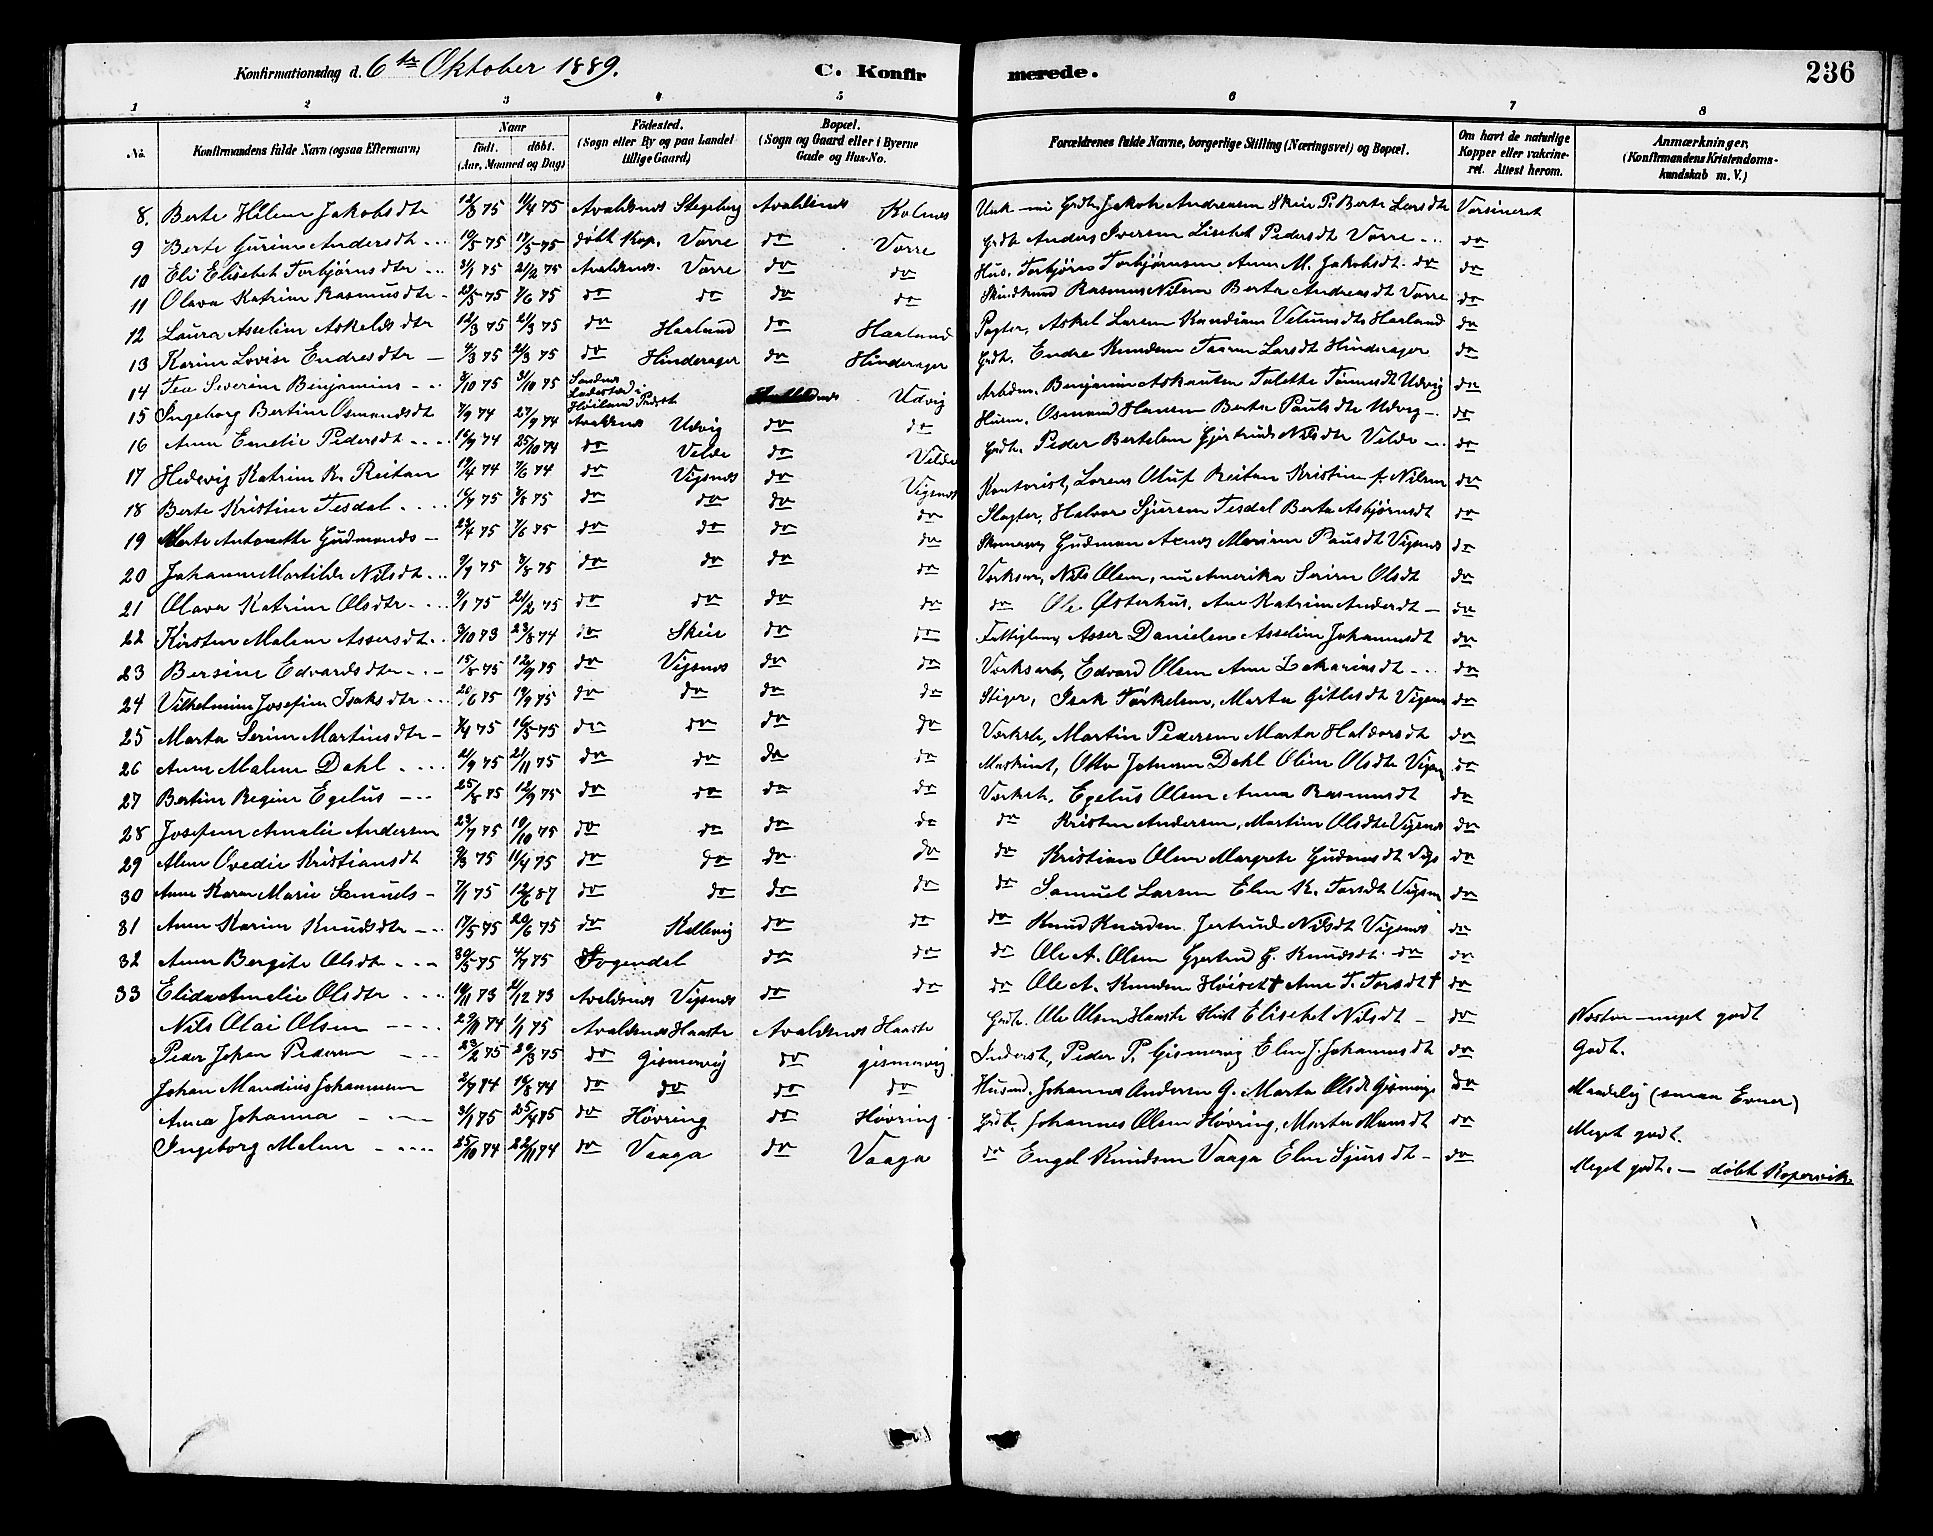 Konfirmationsdag d. 6te Oktober 1889. C. Konfirmerede. 236
1 2 3 4 5 6 7 8
No. Konfirmandens fulde Navn (ogsaa Efternavn) Naar födt. döbt. (Aar, Maaned og Dag) Födested. (Sogn eller By og paa Landet tillige Gaard) Bopæl. (Sogn og Gaard eller i Byerne Gade og Hus-No. Forældrenes fulde Navne, borgerlige Stilling (Næringsvei) og Bopæl. Om havt de naturlige Kopper eller vakcineret. Attest herom. Anmærkninger, (Konfirmandens Kristendomskundskab m. V.)
8. Berte Helene Jakobsdtr 12/3 75 1/4 75 Avaldsnes Stegeberg Avaldsnes Kolnes Jakob Andreasen Skeie Berte Larsdtr Vaxineret
9 Berte Gurine Andersdt 10/5 75 17/5 75 döbt Kop. Vorre do Vorre Grdb. Anders Iversen Lisebet Pedersdt Vorre do
10 Eli Elisebet Torbjørnsdtr 3/1 75 21/2 75 Avaldsnes. Vorre do do Hus. Torbjørn Torbjørnsen Anne M. Jakobsdt. do do
11 Olava Katrine Rasmusdtr 23/5 75 7/6 75 do do do do Rasmus Nilsen Berta Andreasdt Vorre do
12 Laura Asseline Askelds dtr 12/3 75 21/3 75 do Haaland do Haaland Pagter, Askel Larsen Haaland do
13 Karine Lovise Endresdtr 4/3 75 21/3 75 do Hinderager do Hinderager Grdb. Endre Knudsen Larsdt Hinderager do
14 Tea Severine Benjamins 3/10 75 31/10 75 Sandnes Ladested i Høiland Præst. Udvig Arbdsm. Benjamin Askautsen Tolette Tønnesdt Udvig do
15 Ingeborg Bertine Osmundsdt 7/9 74 27/9 74 Avaldsnes Udvig do do Husm. Osmund Hansen Berta Paulsdtr Udvig do
16 Anne Emelie Pedersdt 16/9 74 25/10 74 do Velde do Velde Grdb. Peder Bertelsen Gjertrud Nilsdtr Velde do
17 Hedevig Katrine K. Reitan 19/4 74 7/6 74 do Vigsnes do Vigsnes Kontorist, Lorens Oluf Reitan Kristine f. Nilsen do
18 Berte Kristine Tesdal 75 75 do do do do Slagter, Halvor Sjursen Tesdal Berta Asbjørnsdt do
19 Marte Antonette Gudmunds 29/4 75 7/6 75 do do do do Gudmun Mariane Paulsdt Vigsnes do
20 Johanne Martilde Nilsdt 9/7 75 8/8 75 do do do do Nils Olsen, nu Amerika Serine Olsdt do
21 Olava Katrine Olsdtr 9/1 75 21/2 75 do do do do do Ole Østerhus, Ane Katrine Andersdt do
22 Kirsten Malene Assersdt 3/10 73 23/8 74 do Skeie do do Fattiglem, Asser Danielsen Asseline Johannesdt do
23 Bersine Edvardsdtr 15/8 75 12/9 75 do Vigsnes do do Værksarb. Edvard Olsen Anne Zakariasdt do
24 Vilhelmine Josefine Isaksdtr 20/6 75 19/9 75 do do do do Stiger, Isak Torkelsen, Marta Gitlesdt Vigsnes do
25 Marta Serine Martinsdtr 4/4 75 16/5 75 do do do do Værksb, Martin Pedersen Marta Haldorsdt do
26 Anne Malene Dahl 21/9 75 21/11 75 do do do do Maskinist, Otto Johnsen Dahl Oline Olsdtr Vigsn do
27 Bertine Regine Egelus 25/8 75 12/9 75 do do do do Værksb. Egelus Olsen Anna Rasmusdt do
28 Josefine Amalie Andersen 23/7 75 19/10 75 do do do do do Kristen Andersen, Martine Olsdtr Vigsnes do
29 Alene Ovedie Kristiansdt 9/3 75 11/4 75 do do do do do Kristian Olsen Margrete Gudmsdt Vigs do
30 Anne Karen Marie Samuels 7/1 75 12/6 87 do do do do do Samuel Larsen Elen K. Torsdt Vigsn do
31 Anne Karine Knudsdtr 17/5 75 20/6 75 do Kallevig do do do Knud Knudsen Jertrud Nilsdt Vigsnes do
32 Anne Bergite Olsdtr 30/5 75 4/7 75 Sogendal do do do Ole A. Olsen Gjertrud G. Knudsdt. do do
33 Elida Amelie Olsdtr 18/11 73 21/12 73 Avaldsnes Vigsnes do do do Ole A. Knudsen Høiset† Ane T. Torsdt† do
Nils Olai Olsen 29/11 74 1/1 75 Avaldsnes Haaste Avaldsnes Haaste Grdb. Ole Olsen Haaste Elisebet Nilsdt do Næsten meget godt
Peder Johan Pedersen 23/2 75 29/3 75 do Gismervig do Gismervig Inderst, Peder P. Gismervig Elen J. Johannesdt do Godt.
Johan Mandius Johannesen 2/7 74 16/8 74 do do do do Husmd. Johannes Andersen G. Marta Olsdt Gismervig do Maadelig (smaa Evner)
Anna Johanna 3/1 75 25/4 75 do Høvring do Høvring Grdb. Johannes Olsen Høvring, Marta Monsdt do Meget godt.
Ingeborg Malene 25/10 74 22/11 74 do Vaaga do Vaaga do Engel Knudsen Vaaga Elen Sjursdt do Meget godt. — döbt Kopervik.